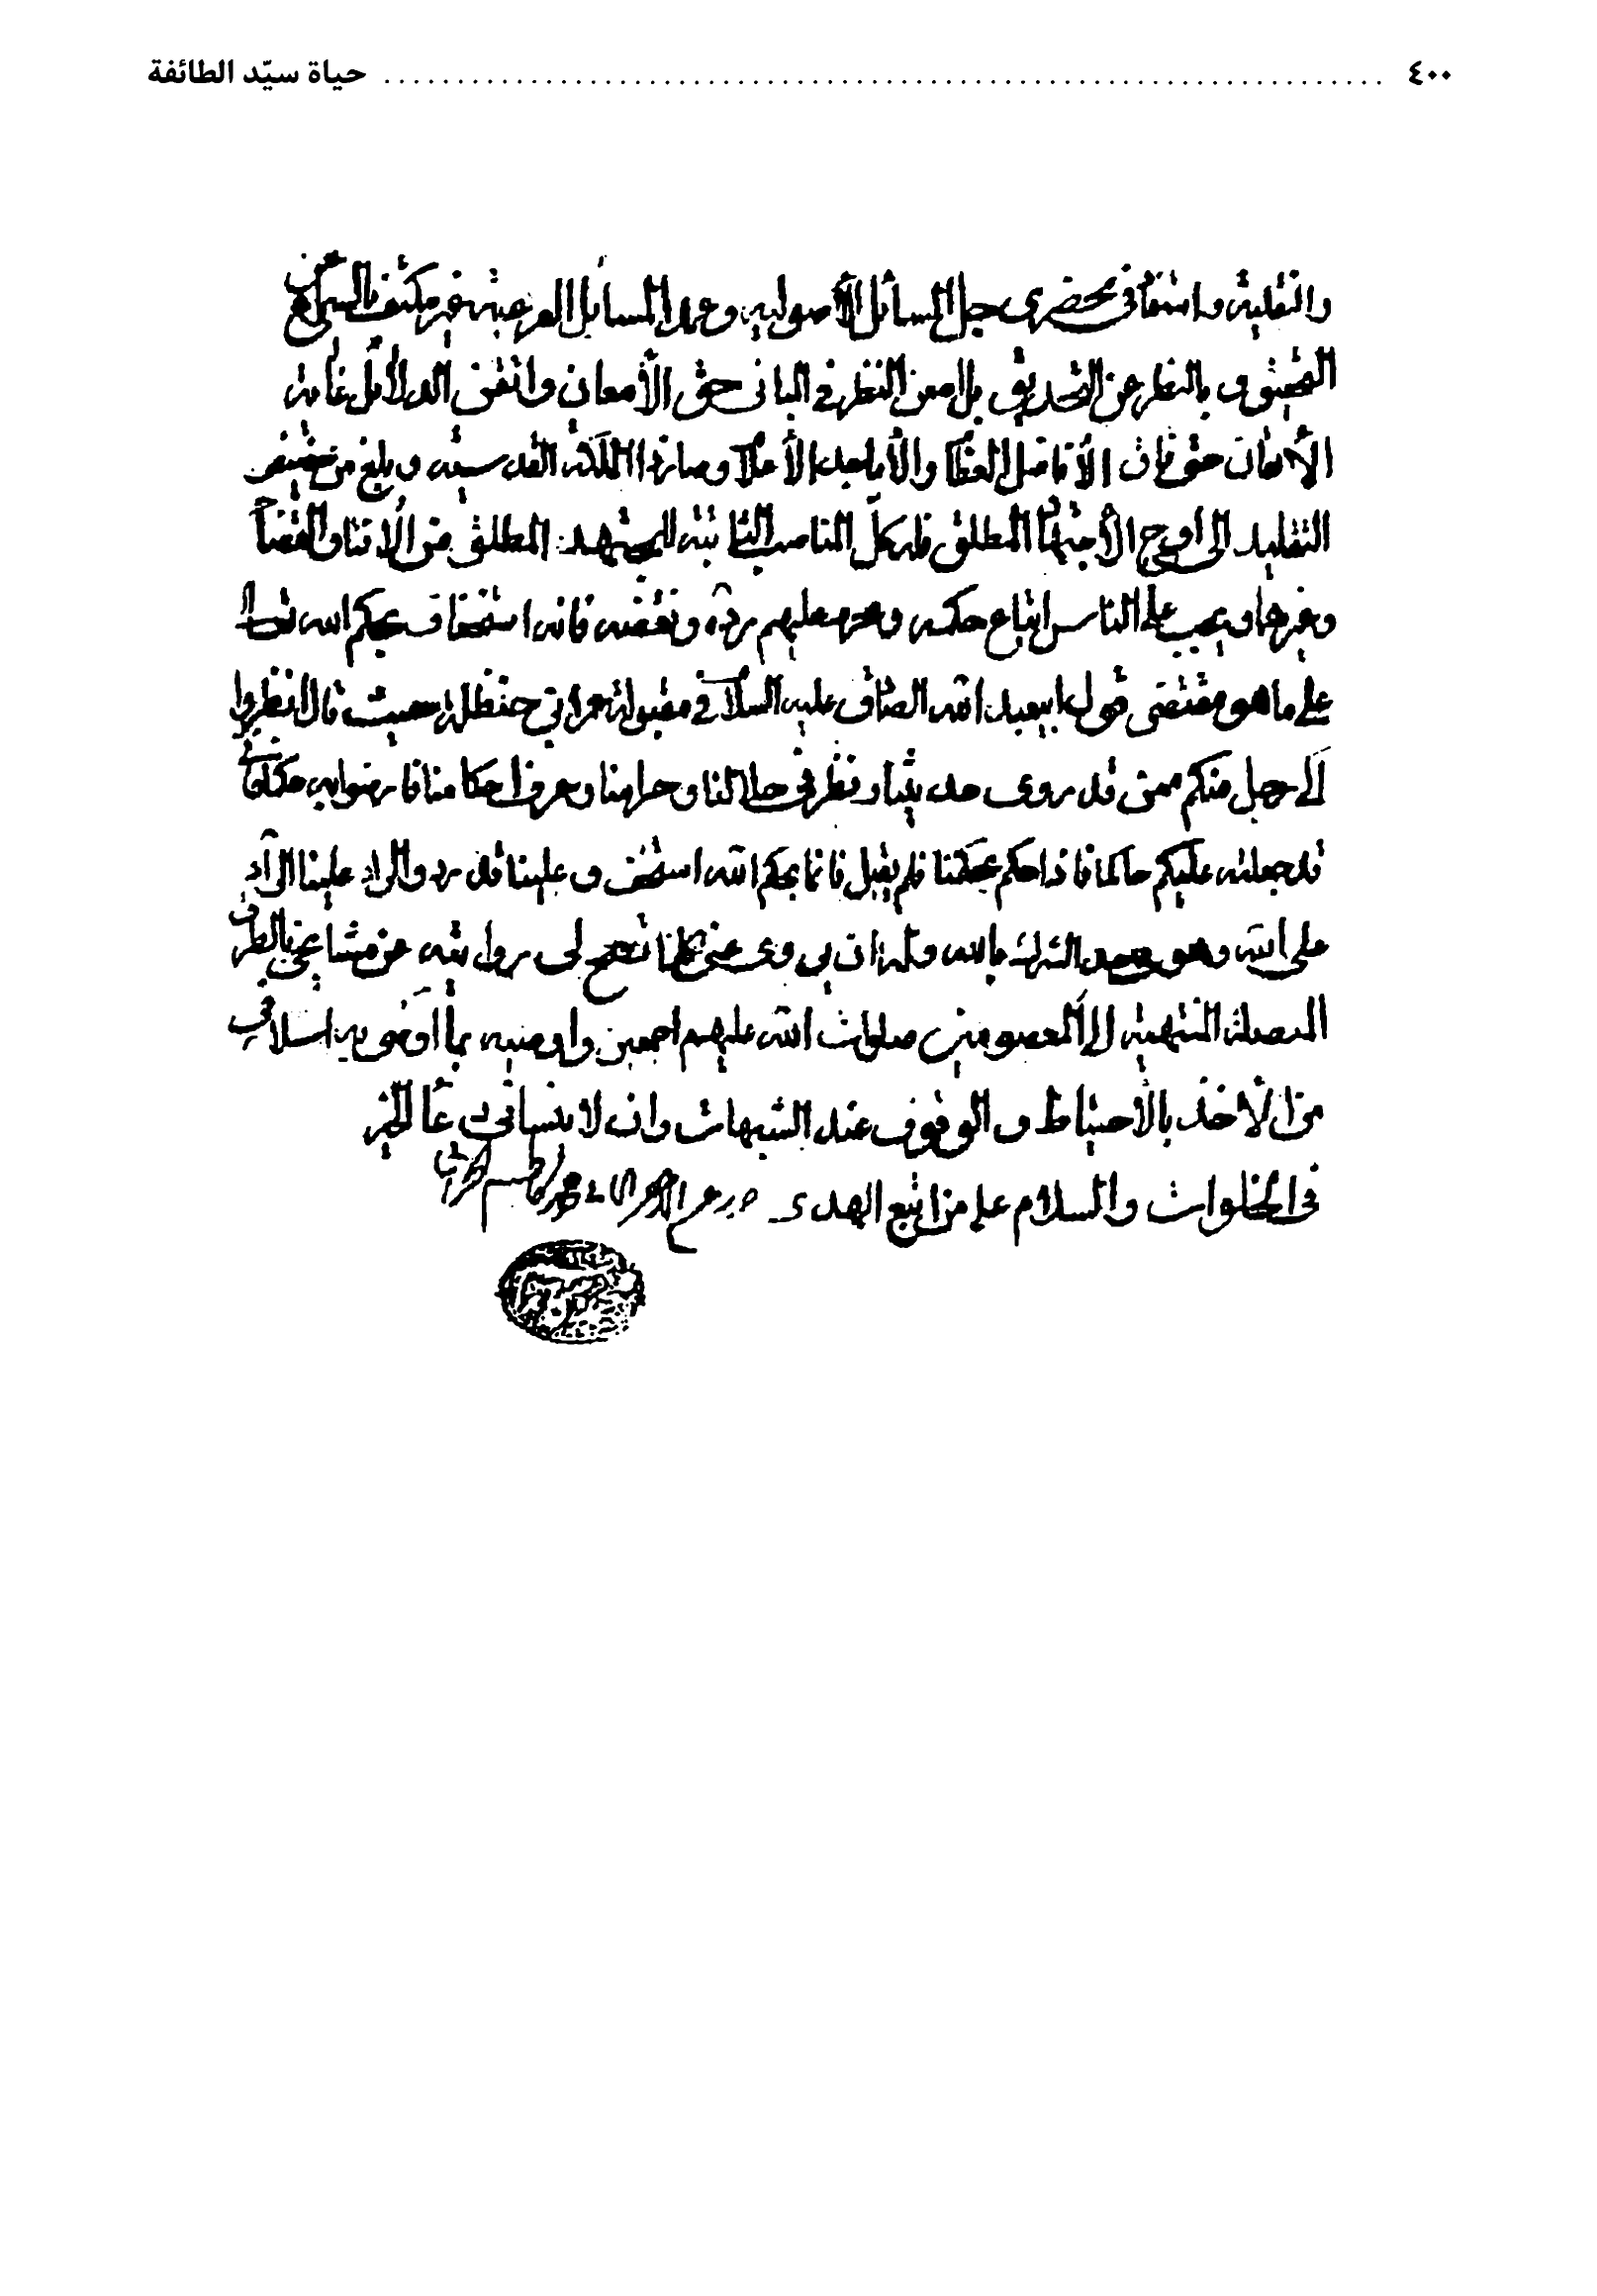 ٤٠٠ ........ حياة سيّد الطائفة
والنقلية واستفاد في محضري جل المسائل الأصولية وعمدة المسائل الفرعية غير مكتف بالسماع عن
التعميق و بالنظر عن التحديق بل امعن النظر في المباني حق الأمعان واتقن الدلائل غاية
الأتقان حتى فاق الأفاضل العظام والأماجد الأعلام وصار ذا الملكة القدسية و بلغ من حضيض
التقليد الى اوج الأجتهاد المطلق فله كل المناصب الثابتة للمجتهد المطلق من الافتاء والقضاء
وغيرهما و يجب على الناس اتباع حكمه ويحرم عليهم رده ونقضه فانه استخفاف بحكم الله تعالى
على ما هو مقتضى قول ابيعبد الله الصادق عليه السلام في مقبولة عمر ابن حنظلة حيث قال انظروا
الى رجل منكم ممن قد روى حديثنا ونظر في حلالنا وحرامنا وعرف احكامنا فارضوا به حكما فانى
قد جعلته عليكم حاكما فاذا حكم بحكمنا فلم يقبل فانما بحكم الله استخف و علينا قد رد والراد علينا الراد
على الله وهو حد الشرك بالله وله ان يروى عنى كلما تصح لى روايته عن مشايخى بالطرق
المتصلة المنتهية الى المعصومين صلوات الله عليهم اجمعين واوصيه بما اوصوني به اسلافي
من الأخذ بالأحتياط و الوقوف عند الشبهات وان لا ينساني من دعاء الخير
في الخلوات والسلام على من اتبع الهدى